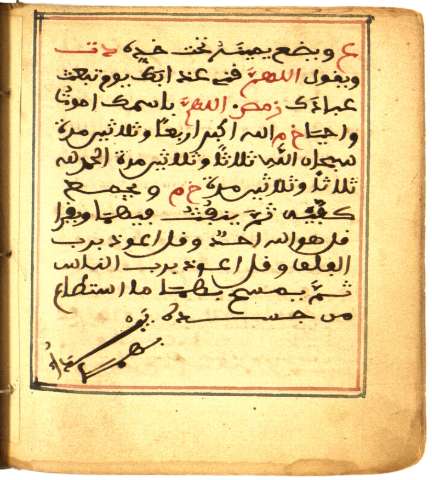 ع ويضع يمينه تحت خده د ت
ويقول اللهم قني عذابك يوم تبعث
عبادك مص. اللهم باسمك اموت
واحيا خ م الله اكبر اربعًا وثلاثين مرة
سبحان الله ثلاثًا وثلاثين مرة الحمد لله
ثلاثًا وثلاثين مرة خ م ويجمع
كفيه ثمّ ينفث فيهما ويقرا
قل هو الله احدٌ وقل اعوذ برب
الفلق وقل اعوذ برب الناس
ثمّ يمسح بهما ما استطاع
من جسده
بهما